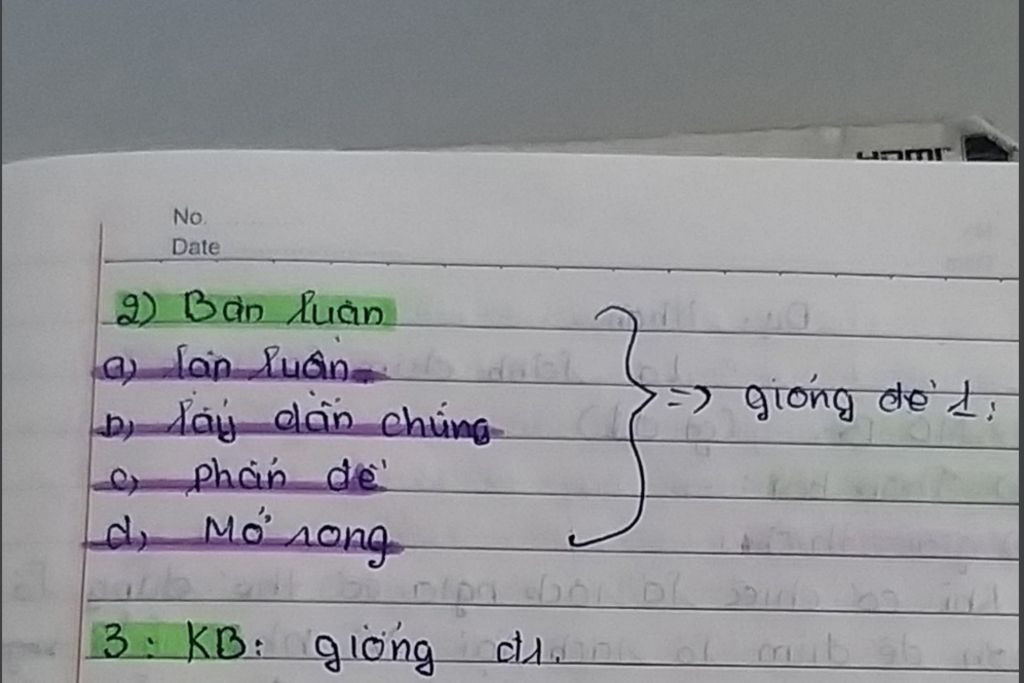 No.
Date
2) Bàn luận
a) lập luận
b) lấy dẫn chứng
c) phản đề
d) Mở rộng
=> giống đề 1.
3: KB: giống đ1.